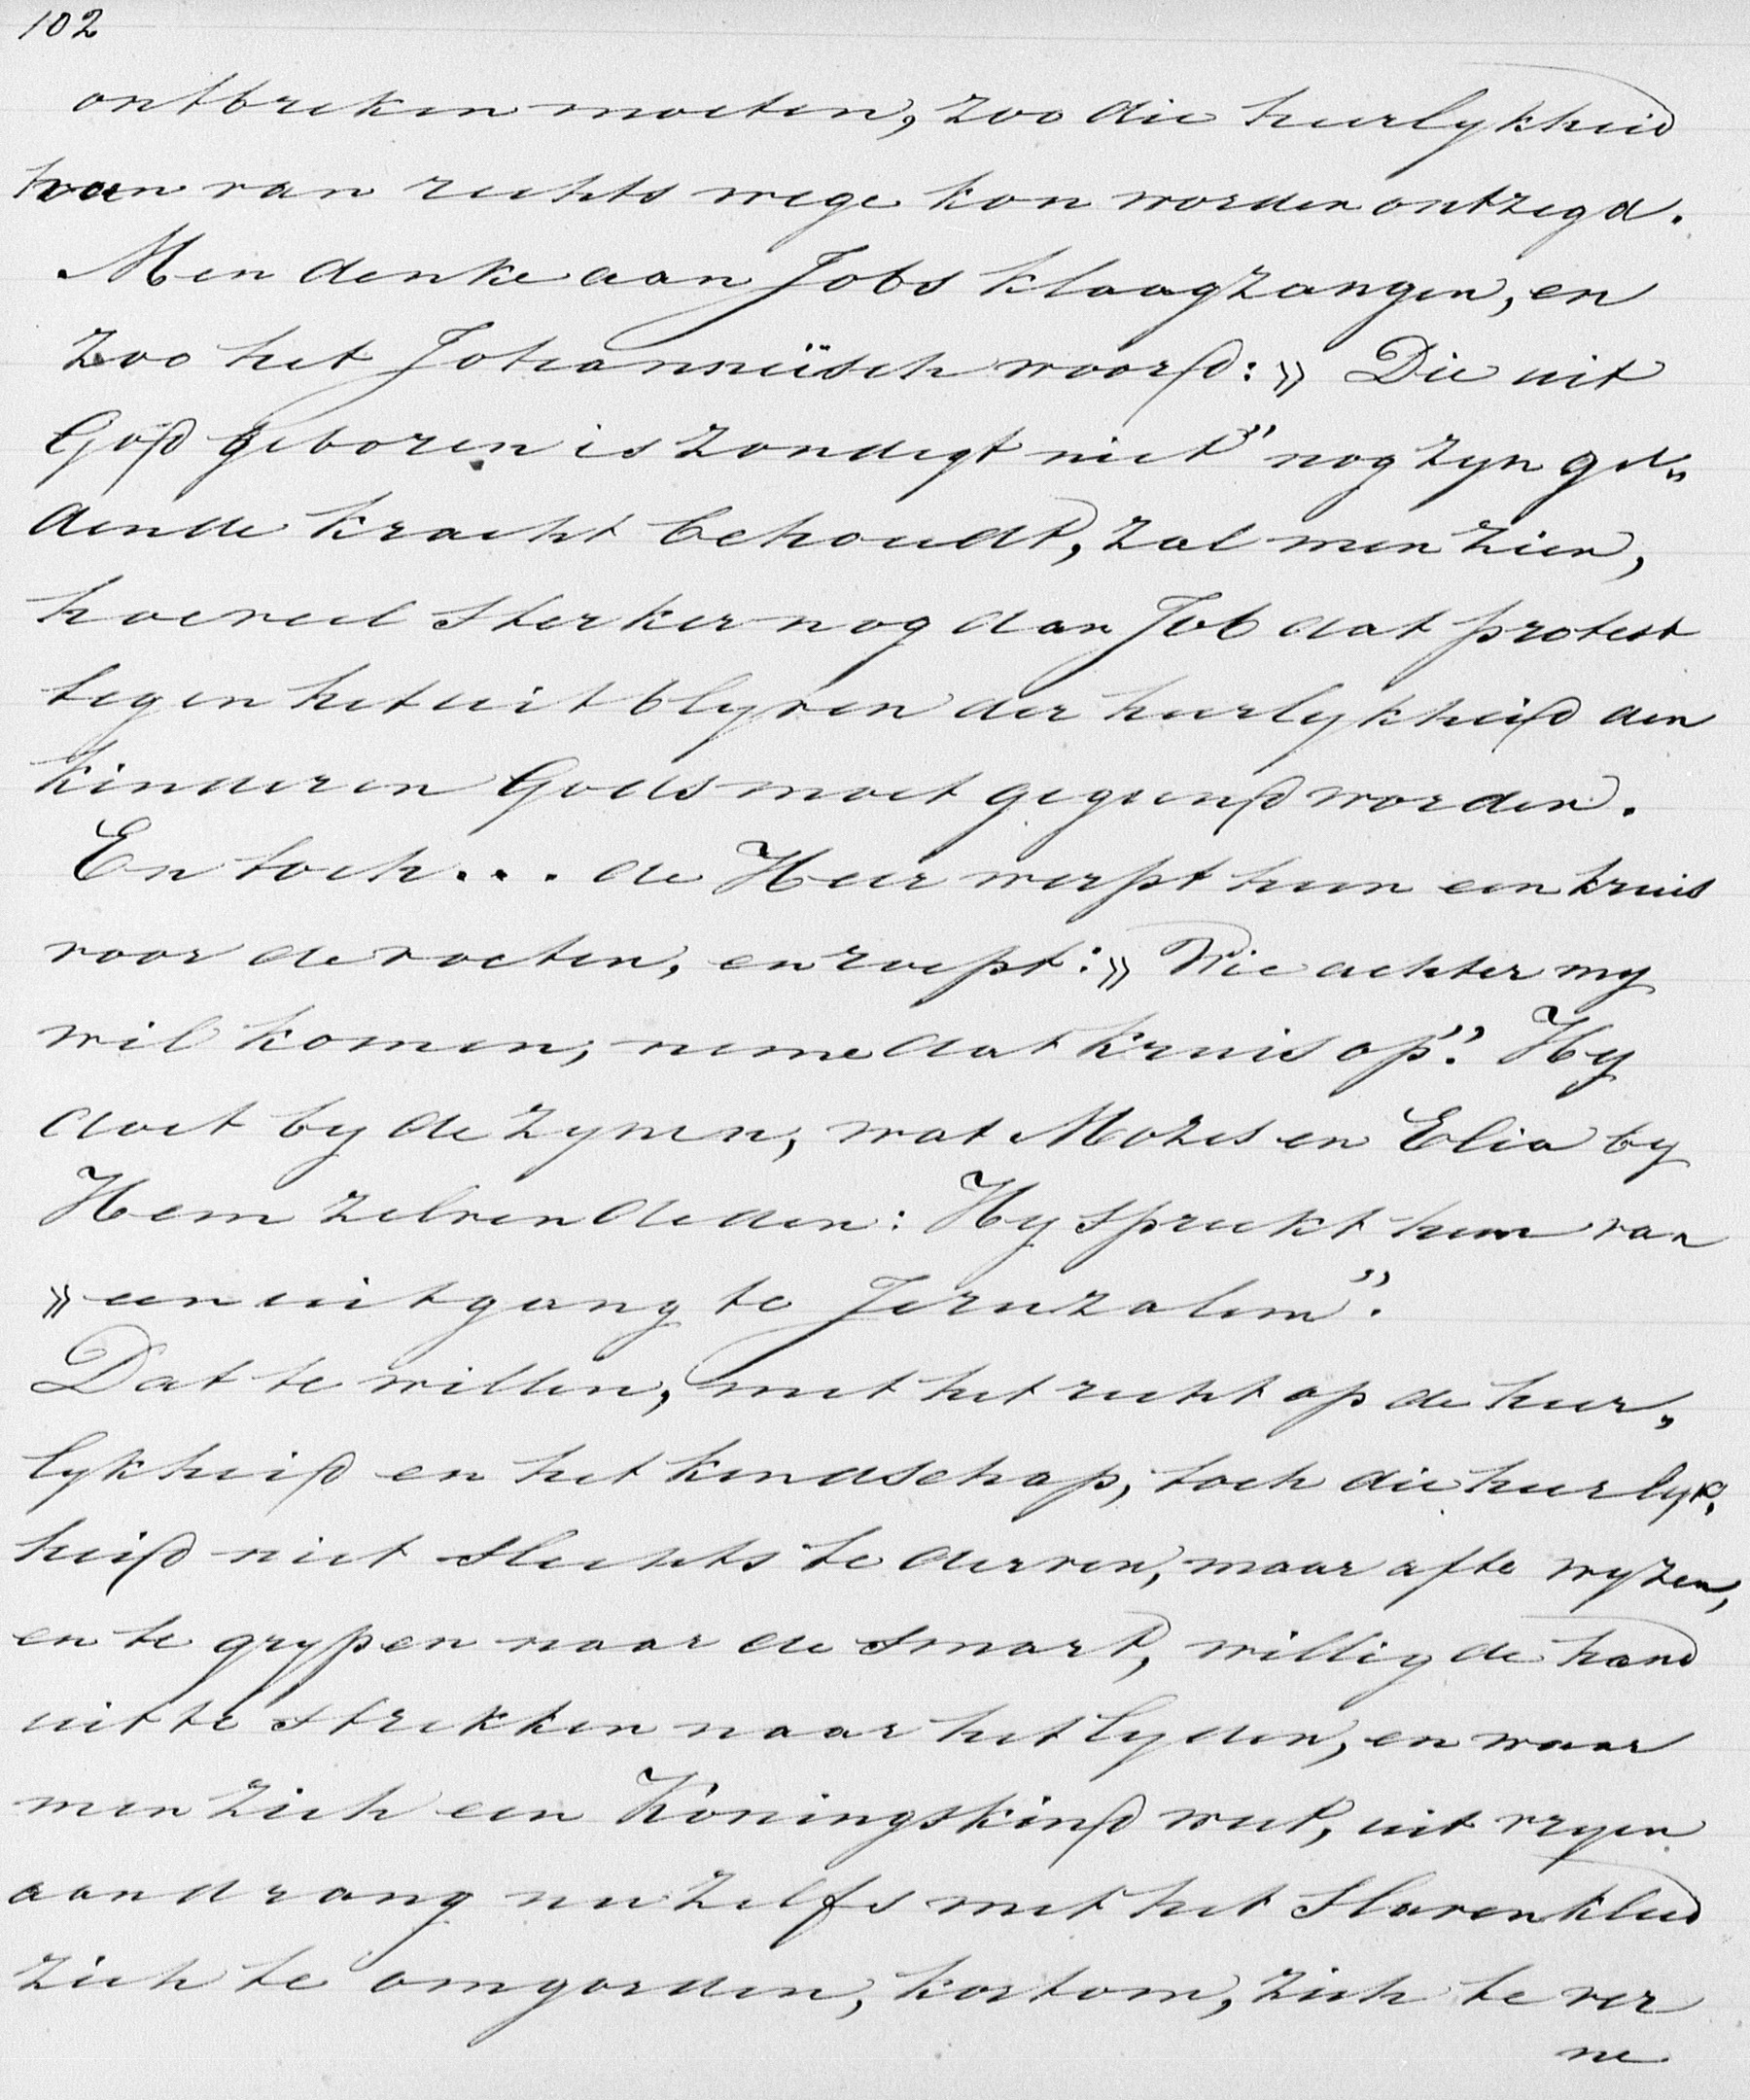 102
ontbreken moeten, zoo die heerlykheid
hun van rechts wege kon worden ontzegd.
Men denke aan Jobs klaagzangen, en
zoo het Johanneïsch woord: „Die uit
God geboren is zondigt niet” nog zyn gel„
dende kracht behoudt, zal men zien,
hoeveel sterker nog dan Job dat protest
tegen het uitblyven der heerlykheid den
kinderen Gods moet gegund worden.
En toch... de Heer werpt hun een kruis
voor de voeten, en roept: „Wie achter my
wil komen, neme dat kruis op”. Hy
doet by de zynen, wat Mozes en Elia by
Hem zelven deden: Hy spreekt hun van
„een uitgang te Jeruzalem”.
Dat te willen, met het recht op de heer„
lykheid en het kindschap, toch die heerlyk„
heid niet slechts te derven, maar af te wyzen,
en te grypen naar de smart, willig de hand
uit te strekken naar het lyden, en waar
men zich een Koningskind weet, uit vryen
aandrang nu zelfs met het slavenkleed
zich te omgorden, kortom, zich te ver
ne